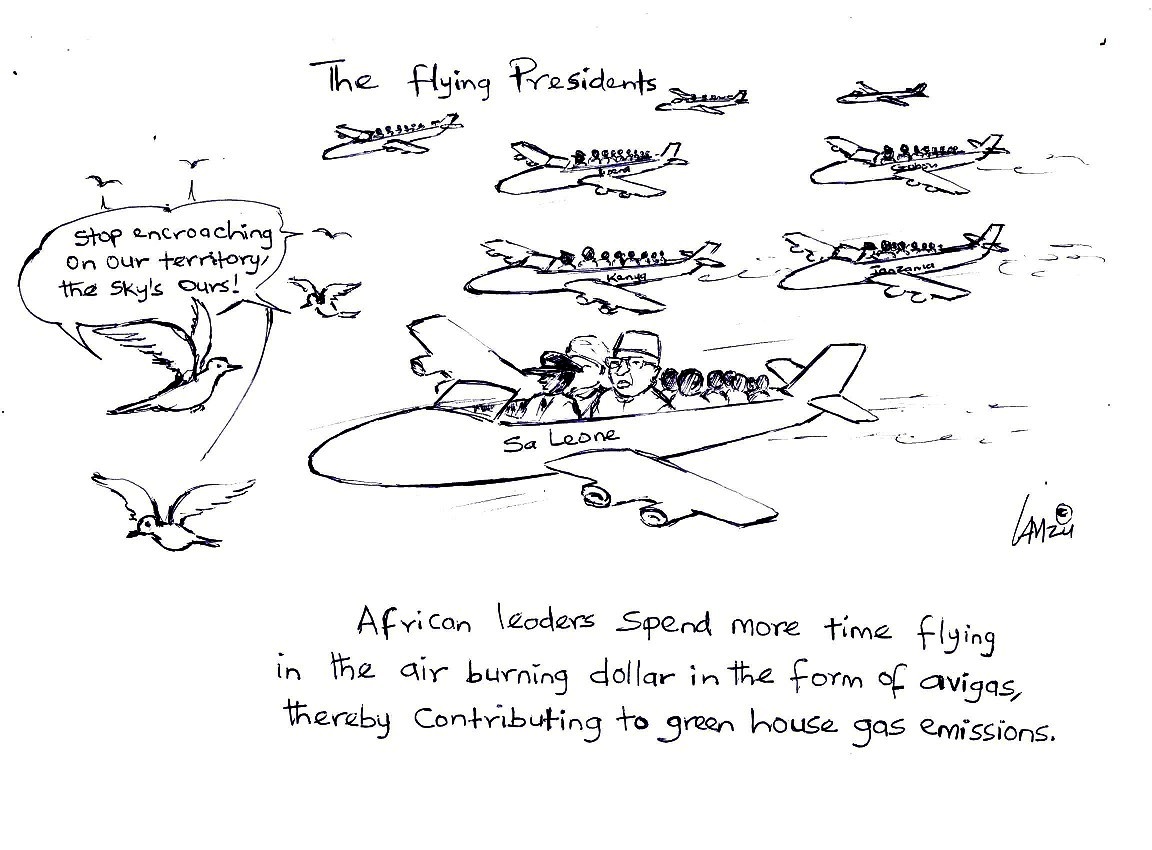 The flying Presidents
Stop encroaching
on our territory,
the sky's ours!
Gabon
Kenya
Tanzania
Sa Leone
LAMZU ©
African leaders spend more time flying
in the air burning dollar in the form of avigas,
thereby contributing to green house gas emissions.